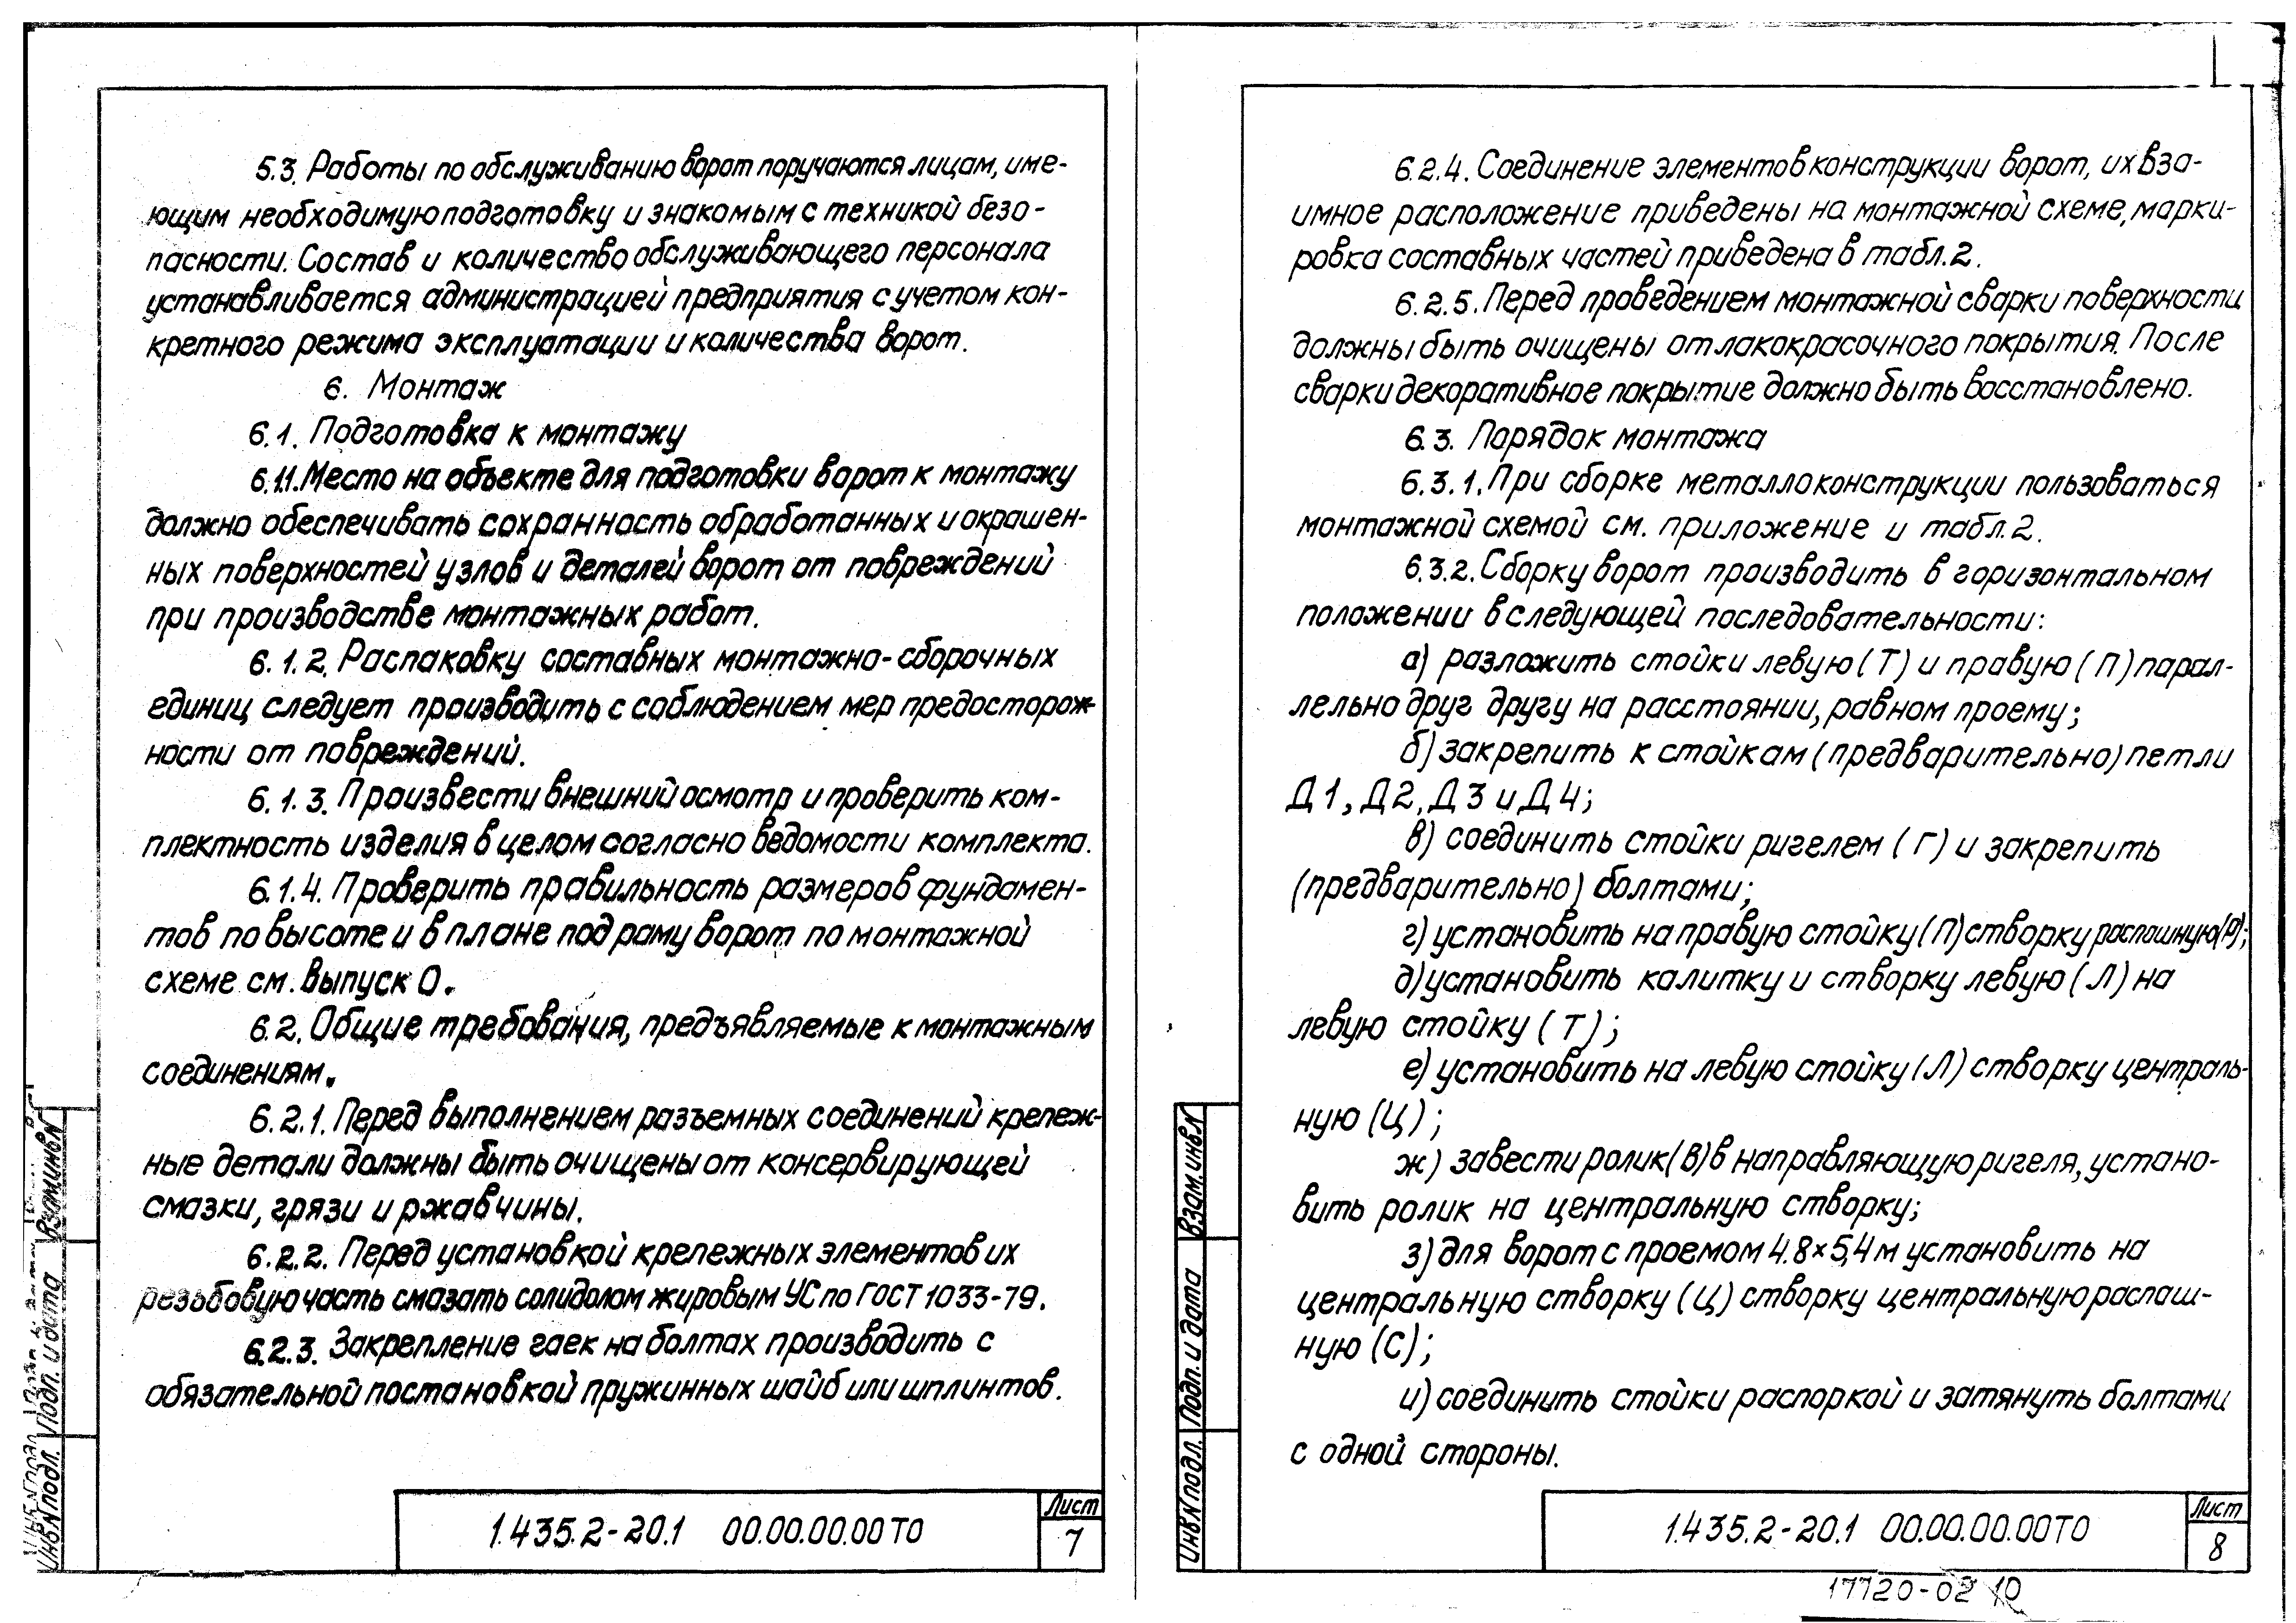 5.3. Работы по обслуживанию ворот поручаются лицам, име-
ющим необходимую подготовку и знакомым с техникой безо-
пасности. Состав и количество обслуживающего персонала
устанавливается администрацией предприятия с учетом кон-
кретного режима эксплуатации и количества ворот.
6. Монтаж
6.1. Подготовка к монтажу
6.1.1. Место на объекте для подготовки ворот к монтажу
должно обеспечивать сохранность обработанных и окрашен-
ных поверхностей узлов и деталей ворот от повреждений
при производстве монтажных работ.
6.1.2. Распаковку составных монтажно-сборочных
единиц следует производить с соблюдением мер предосторож-
ности от повреждений.
6.1.3. Произвести внешний осмотр и проверить ком-
плектность изделия в целом согласно ведомости комплекта.
6.1.4. Проверить правильность размеров фундамен-
тов по высоте и в плане под раму ворот по монтажной
схеме см. выпуск 0.
6.2. Общие требования, предъявляемые к монтажным
соединениям.
6.2.1. Перед выполнением разъемных соединений крепеж-
ные детали должны быть очищены от консервирующей
смазки, грязи и ржавчины.
6.2.2. Перед установкой крепежных элементов их
резьбовую часть смазать солидолом жировым УС по ГОСТ 1033-79.
6.2.3. Закрепление гаек на болтах производить с
обязательной постановкой пружинных шайб или шплинтов.
Инв.N подл. Подп. и дата Взам.инв.N
1.435.2-20.1 00.00.00.00ТО
Лист
7
6.2.4. Соединение элементов конструкции ворот, их вза-
имное расположение приведены на монтажной схеме, марки-
ровка составных частей приведена в табл.2.
6.2.5. Перед проведением монтажной сварки поверхности
должны быть очищены от лакокрасочного покрытия. После
сварки декоративное покрытие должно быть восстановлено.
6.3. Порядок монтажа
6.3.1. При сборке металлоконструкции пользоваться
монтажной схемой см. приложение и табл.2.
6.3.2. Сборку ворот производить в горизонтальном
положении в следующей последовательности:
а) разложить стойки левую (Т) и правую (П) парал-
лельно друг другу на расстоянии, равном проему;
б) закрепить к стойкам (предварительно) петли
Д1, Д2, Д3 и Д4;
в) соединить стойки ригелем (Г) и закрепить
(предварительно) болтами;
г) установить на правую стойку (П) створку распашную (Р);
д) установить калитку и створку левую (Л) на
левую стойку (Т);
е) установить на левую стойку (Л) створку централь-
ную (Ц);
ж) завести ролик (В) в направляющую ригеля, устано-
вить ролик на центральную створку;
з) для ворот с проемом 4.8×5,4м установить на
центральную створку (Ц) створку центральную распаш-
ную (С);
и) соединить стойки распоркой и затянуть болтами
с одной стороны.
Инв.N подл. Подп. и дата Взам.инв.N
1.435.2-20.1 00.00.00.00ТО
Лист
8
17720-02 10